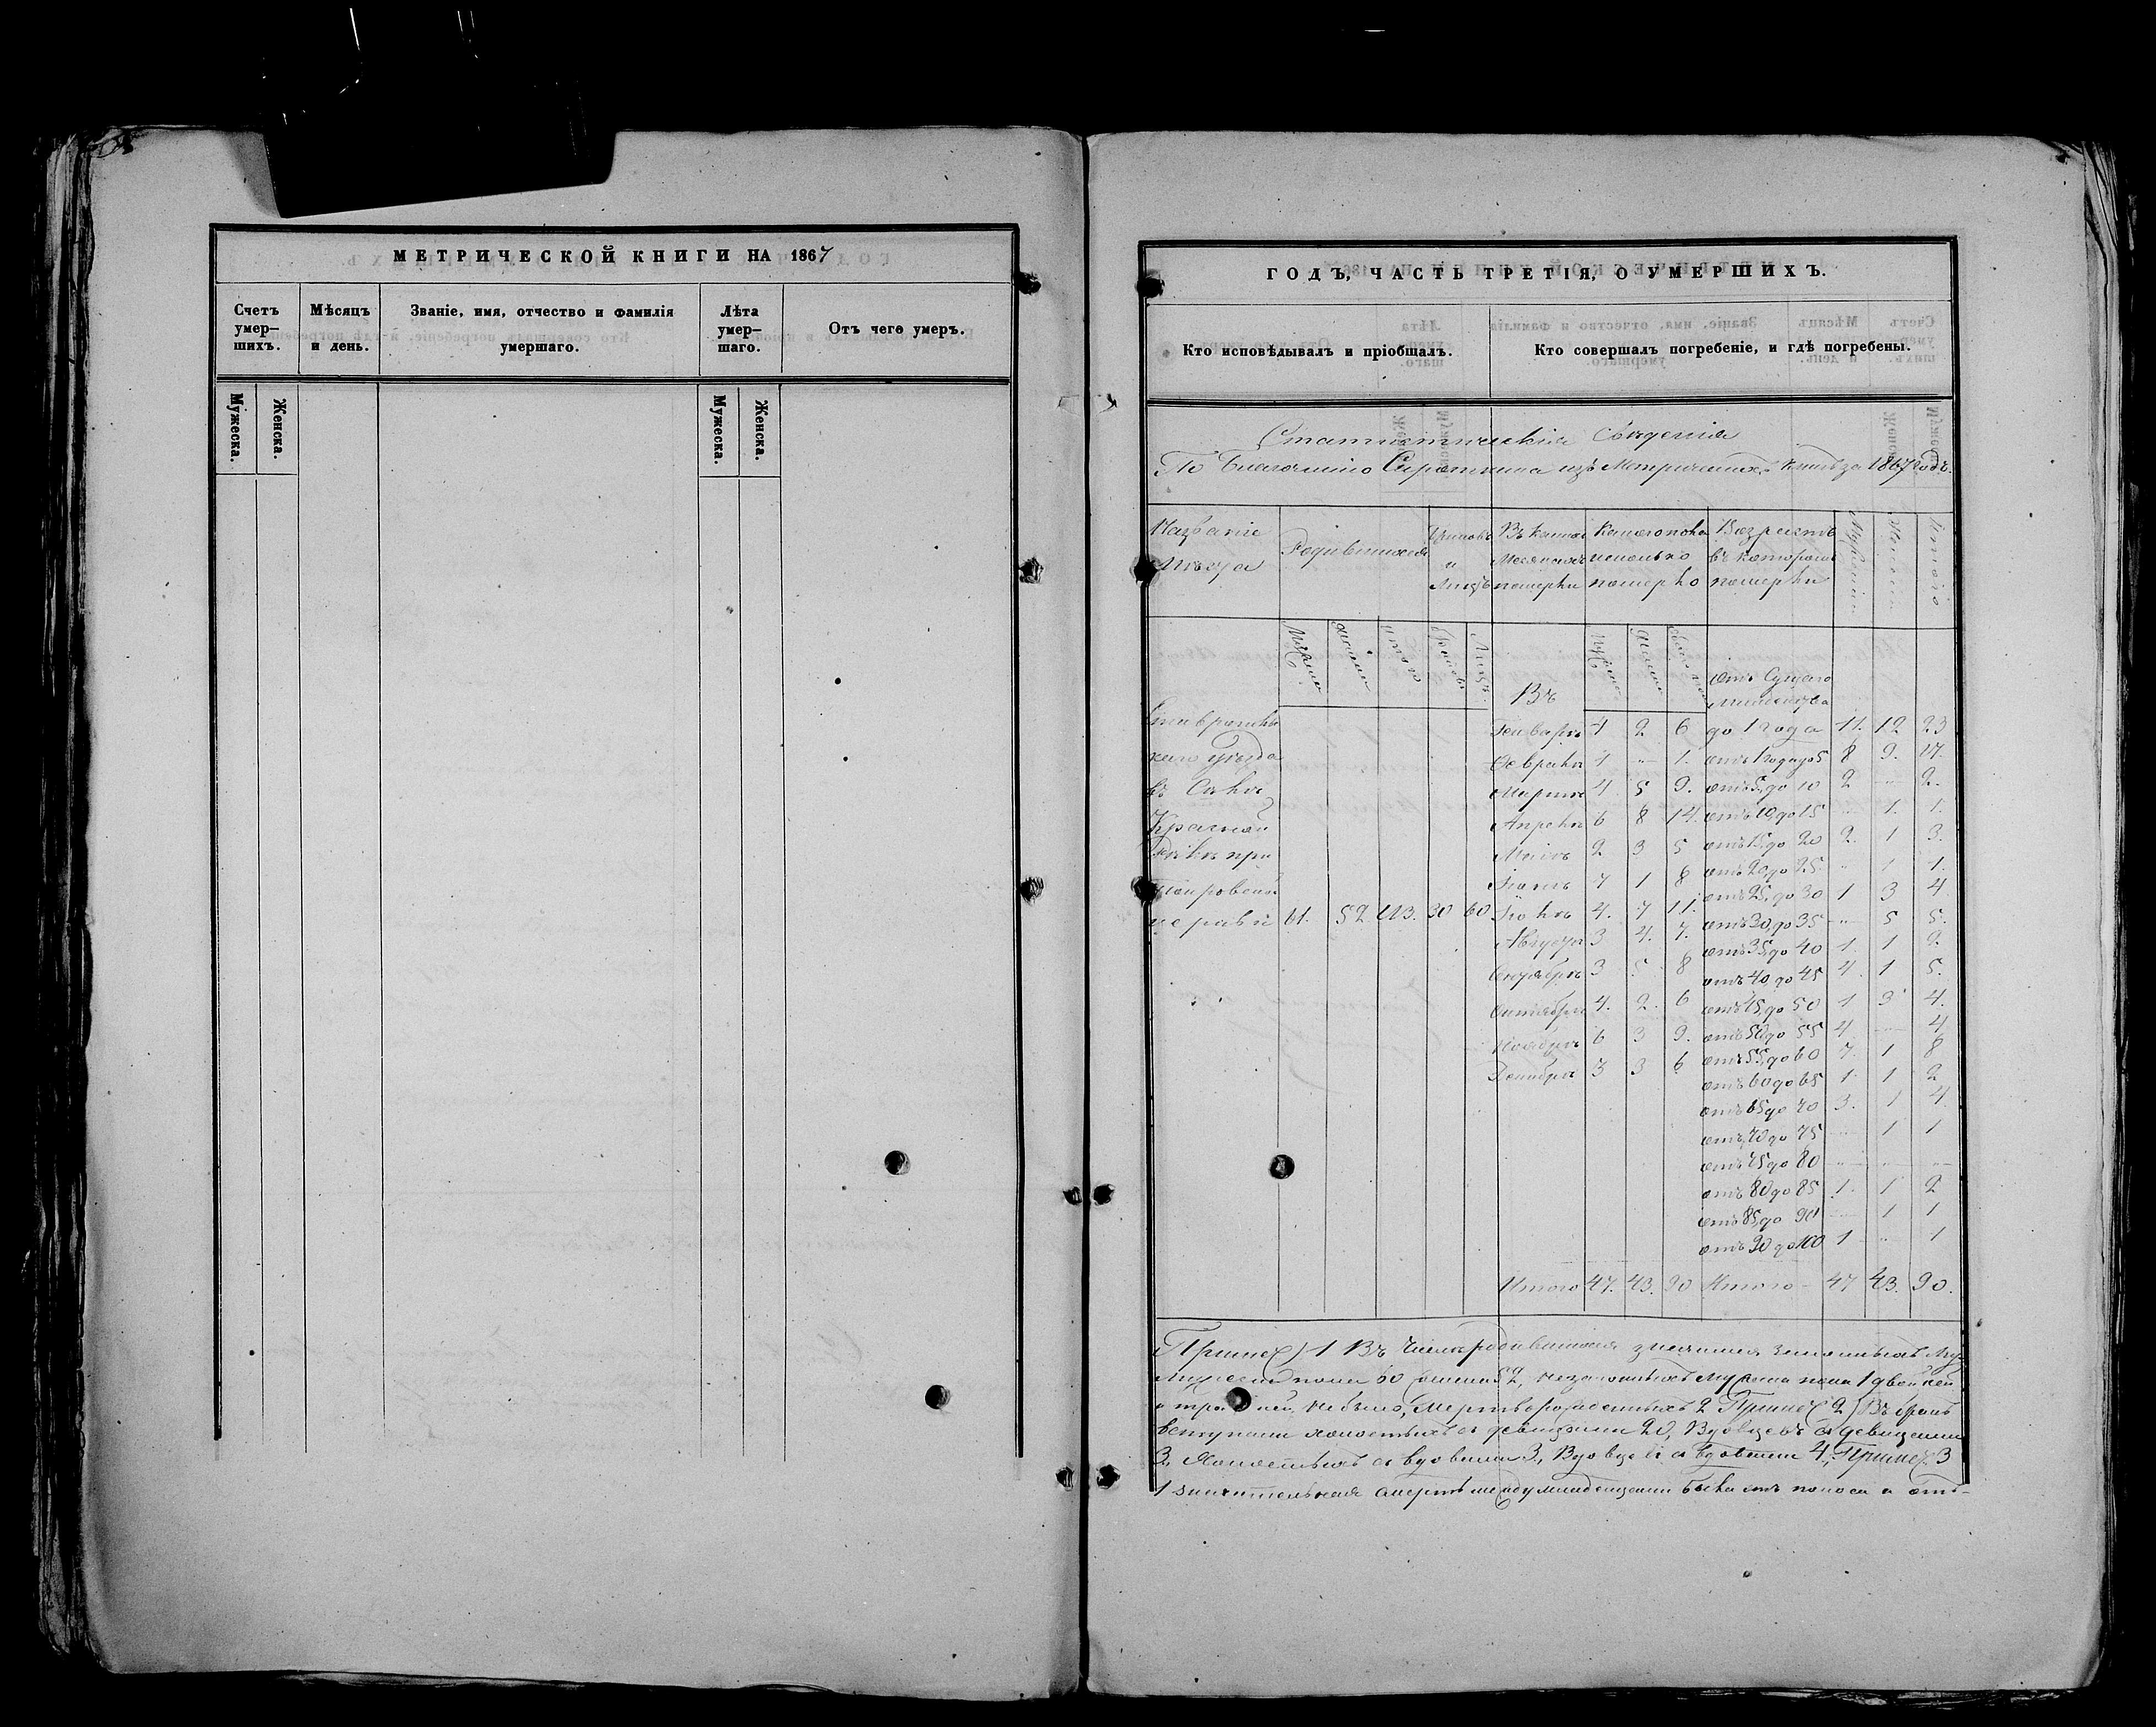 МЕТРИЧЕСКОЙ КНИГИ НА 1867
Счетъ умер-шихъ.
Мѣсяцъ и день.
Званіе, имя, отчество и фамилія умершаго.
Лѣта умер-шаго.
Отъ чего умеръ.
Мужеска.
Женска.
Мужеска.
Женска.
ГОДЪ, ЧАСТЬ ТРЕТІЯ, О УМЕРШИХЪ.
Кто исповѣдывалъ и пріобщалъ.
Кто совершалъ погребеніе, и гдѣ погребены.
Статистическія Свѣденія
По Благочинію Сироткина изъ Метрическихъ книгъ за 1867 годъ.
Названіе
Родившихся
и
Лицъ
Въ
помер
померло
Возрастъ
въ которомъ
Итого
Въ
отъ
до 1 года 11. 12 23
Февралѣ 1 " 1. отъ 1 года до 5 8 9. 17.
въ Селѣ Мартѣ 4 5 9. отъ 5 до 10 2 " 2.
Красной Апрелѣ 6 8 14. отъ 10 до 15 " 1. 1.
при Маѣ 2 3 5 отъ 15 до 20 2. 1 3.
Покровской Іюнѣ 7 1 8 отъ 20 до 25 " 1 1.
отъ 25 до 30 1 3 4
церкви 61. 52 113. 30 60 Іюлѣ 4. 7 11. отъ 30 до 35 " 5 5.
Августѣ 3 4. 7. отъ 35 до 40 1. 1 2.
Сентябрѣ 3 5 8 отъ 40 до 45 4. 1 5.
Октябрѣ 4. 2. 6 отъ 45 до 50 1 3 4.
Ноябрѣ 6 3 9. отъ 50 до 55 4 4
Декабрѣ 3 3 6 отъ 55 до 60 7. 1 8
отъ 60 до 65 1 1 2
отъ 65 до 70 3. 1 4
отъ 70 до 75 1 1
отъ 75 до 80 " " "
отъ 80 до 85 1. 1 2
отъ 85 до 90 1 1
отъ 90 до 100 1 " 1
Итого 47. 43. 90 Итого 47 43. 90.
Примеч) 1 Въ числѣ родившихся законныхъ
пола 60 52, незаконныхъ Мужеска пола 1
и не было, Мертворожденныхъ 2 Примеч 2) Въ бракъ
вступили холостыхъ съ девицами 20, Вдовцевъ съ девицами
3, Холостыхъ съ вдовами 3, Вдовцевъ съ вдовами 4, Примеч. 3
1 значительная смерть между младенцами была отъ поноса и отъ-